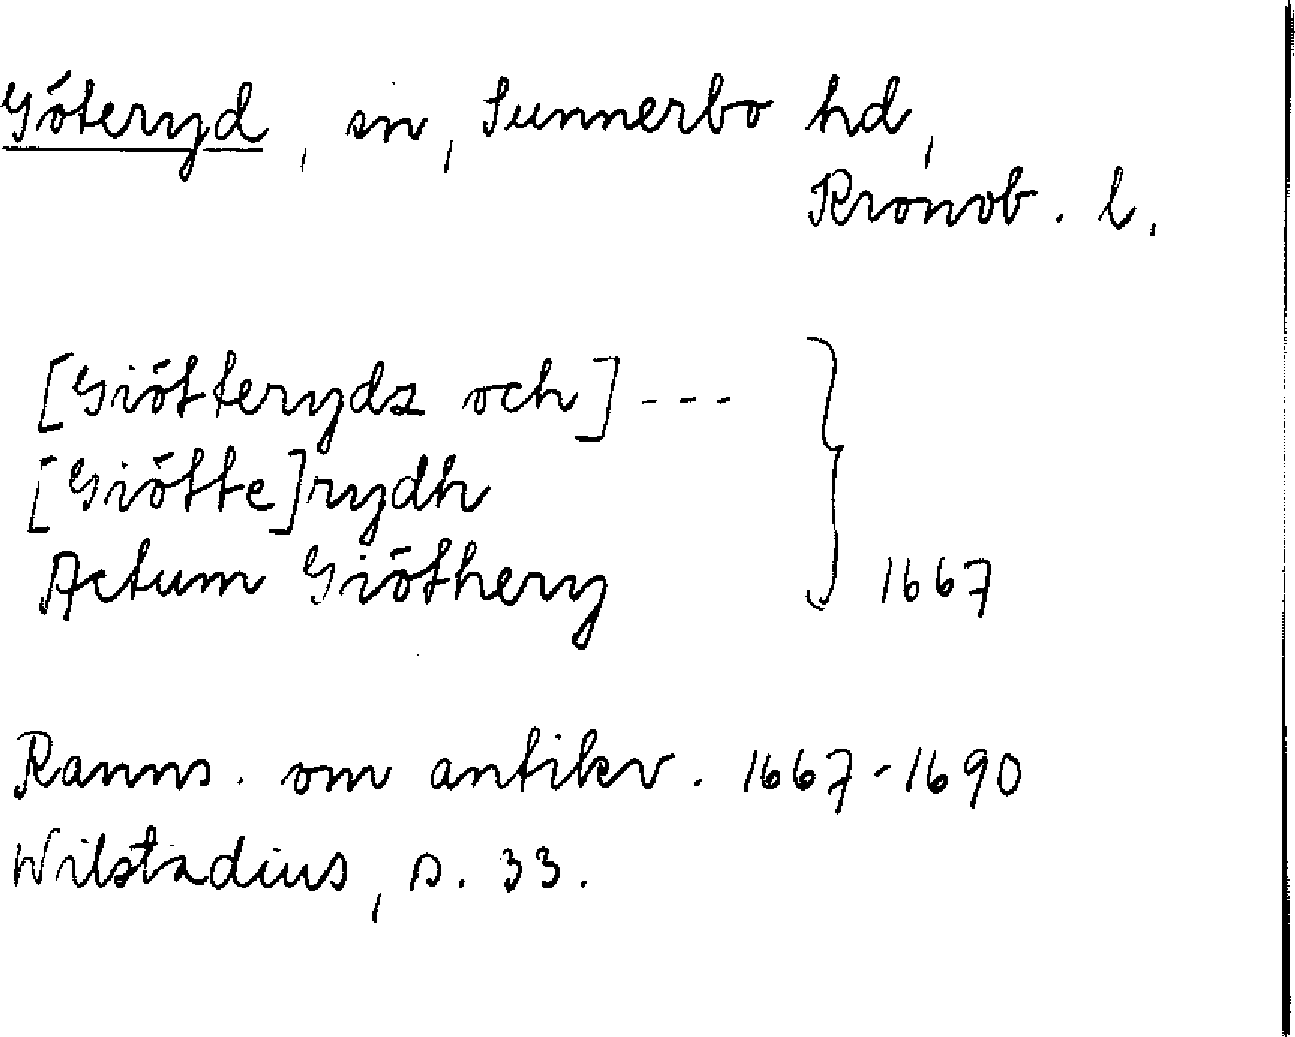 Göteryd, sn, Sunnerbo hd,
Kronob. l.
[Giötterydz och] ---
[Giötte]rydh
Actum Giöthery } 1667
Ranns. om antikv. 1667-1690
Wilstadius, s. 33.